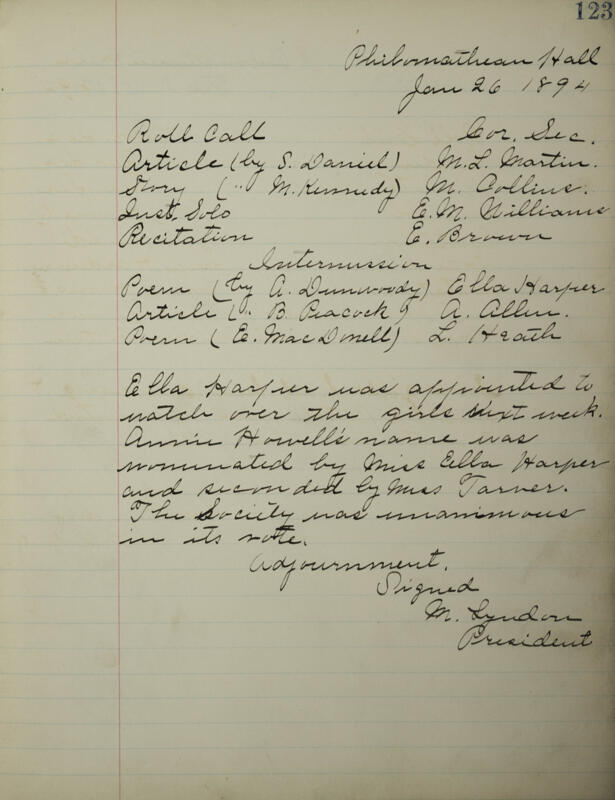 123
Philomathean Hall
Jan 26 1894
Roll Call Cor. Sec.
Article (by S. Daniel) M. L. Martin.
Story ( " M. Kennedy) M. Collins.
Inst. Solo E. M. Williams
Recitation E. Brown
Intermission
Poem (by A. Dunwoody) Ella Harper
Article ( " B. Peacock) A. Allen.
Poem ( E. MacDonell) L. Heath
Ella Harper was appointed to
watch over the girls next week.
Annie Howell's name was
nominated by Miss Ella Harper
and seconded by Miss Tarver.
The Society was unanimous
in its vote.
Adjournment.
Signed
M. Lyndon
President